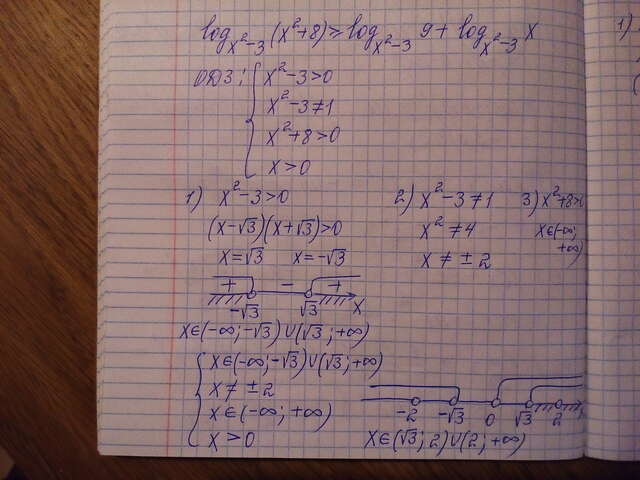 log_{x²-3}(x²+8) ≥ log_{x²-3} 9 + log_{x²-3} x
ОДЗ: { x²-3>0
x²-3≠1
x²+8>0
x>0
1) x²-3>0
(x-√3)(x+√3)>0
x=√3 x=-√3
+ - +
-√3 √3 x
x∈(-∞; -√3)∪(√3; +∞)
2) x²-3≠1
x²≠4
x≠±2
3) x²+8>0
x∈(-∞;
+∞)
{ x∈(-∞; -√3)∪(√3; +∞)
x≠±2
x∈(-∞; +∞)
x>0
-2 -√3 0 √3 2
x∈(√3; 2)∪(2; +∞)
1)